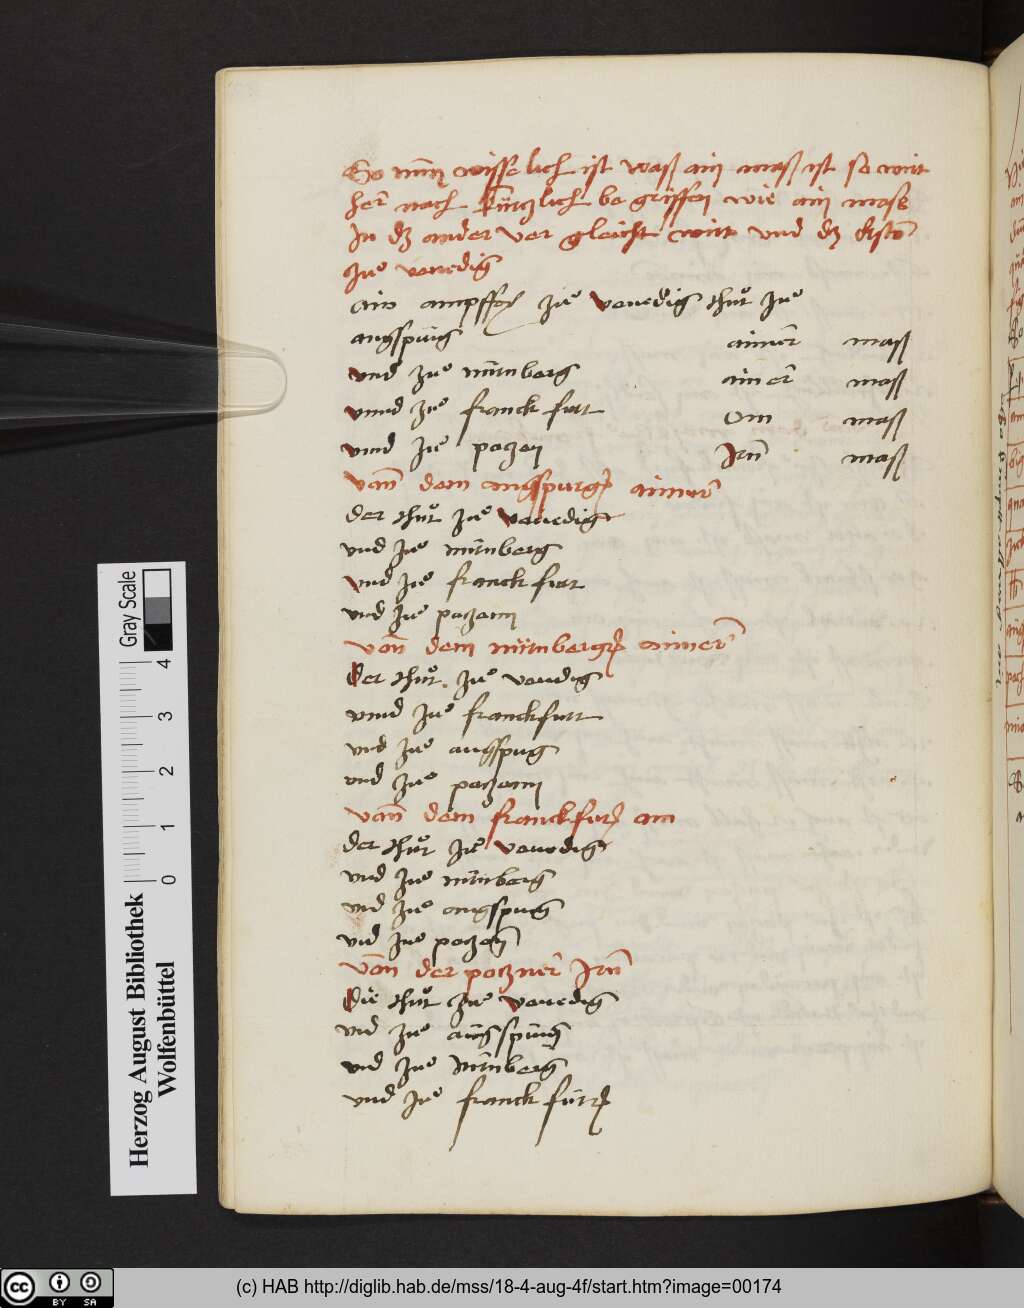 So nün wisselich ist waß ain maß ist so wirt
her nach kürczlich be griffen wie ain mass
In dz ander ver gleicht wirt vnd dz erst
zue venedig
ain ampffor zue venedig thut zue
augspurg ainer maß
vnd zue nürnberg ainer maß
vnnd zue franck furt Om maß
vnnd zue poczen Irn maß
Van dem augspurger aimer
der thut zue venedig
vnd zue nürnberg
vnd zue franck furt
vnd zue poczenn
Van dem nürnberger aimer
Der thut zue venedig
vnnd zue franckfurt
vnd zue augspug
vnd zue poczenn
Van dem franckfurt am
der thut zue venedig
vnd zue nürnberg
vnd zue augspug
vnd zue poczen
Van der poczner Irn
Die thut zue venedig
vnd zue augspüng
vnd zue Nürnberg
vnd zue franck fürt
Gray Scale
4
3
2
1
0
Herzog August Bibliothek
Wolfenbüttel
cc BY SA
(c) HAB http://diglib.hab.de/mss/18-4-aug-4f/start.htm?image=00174